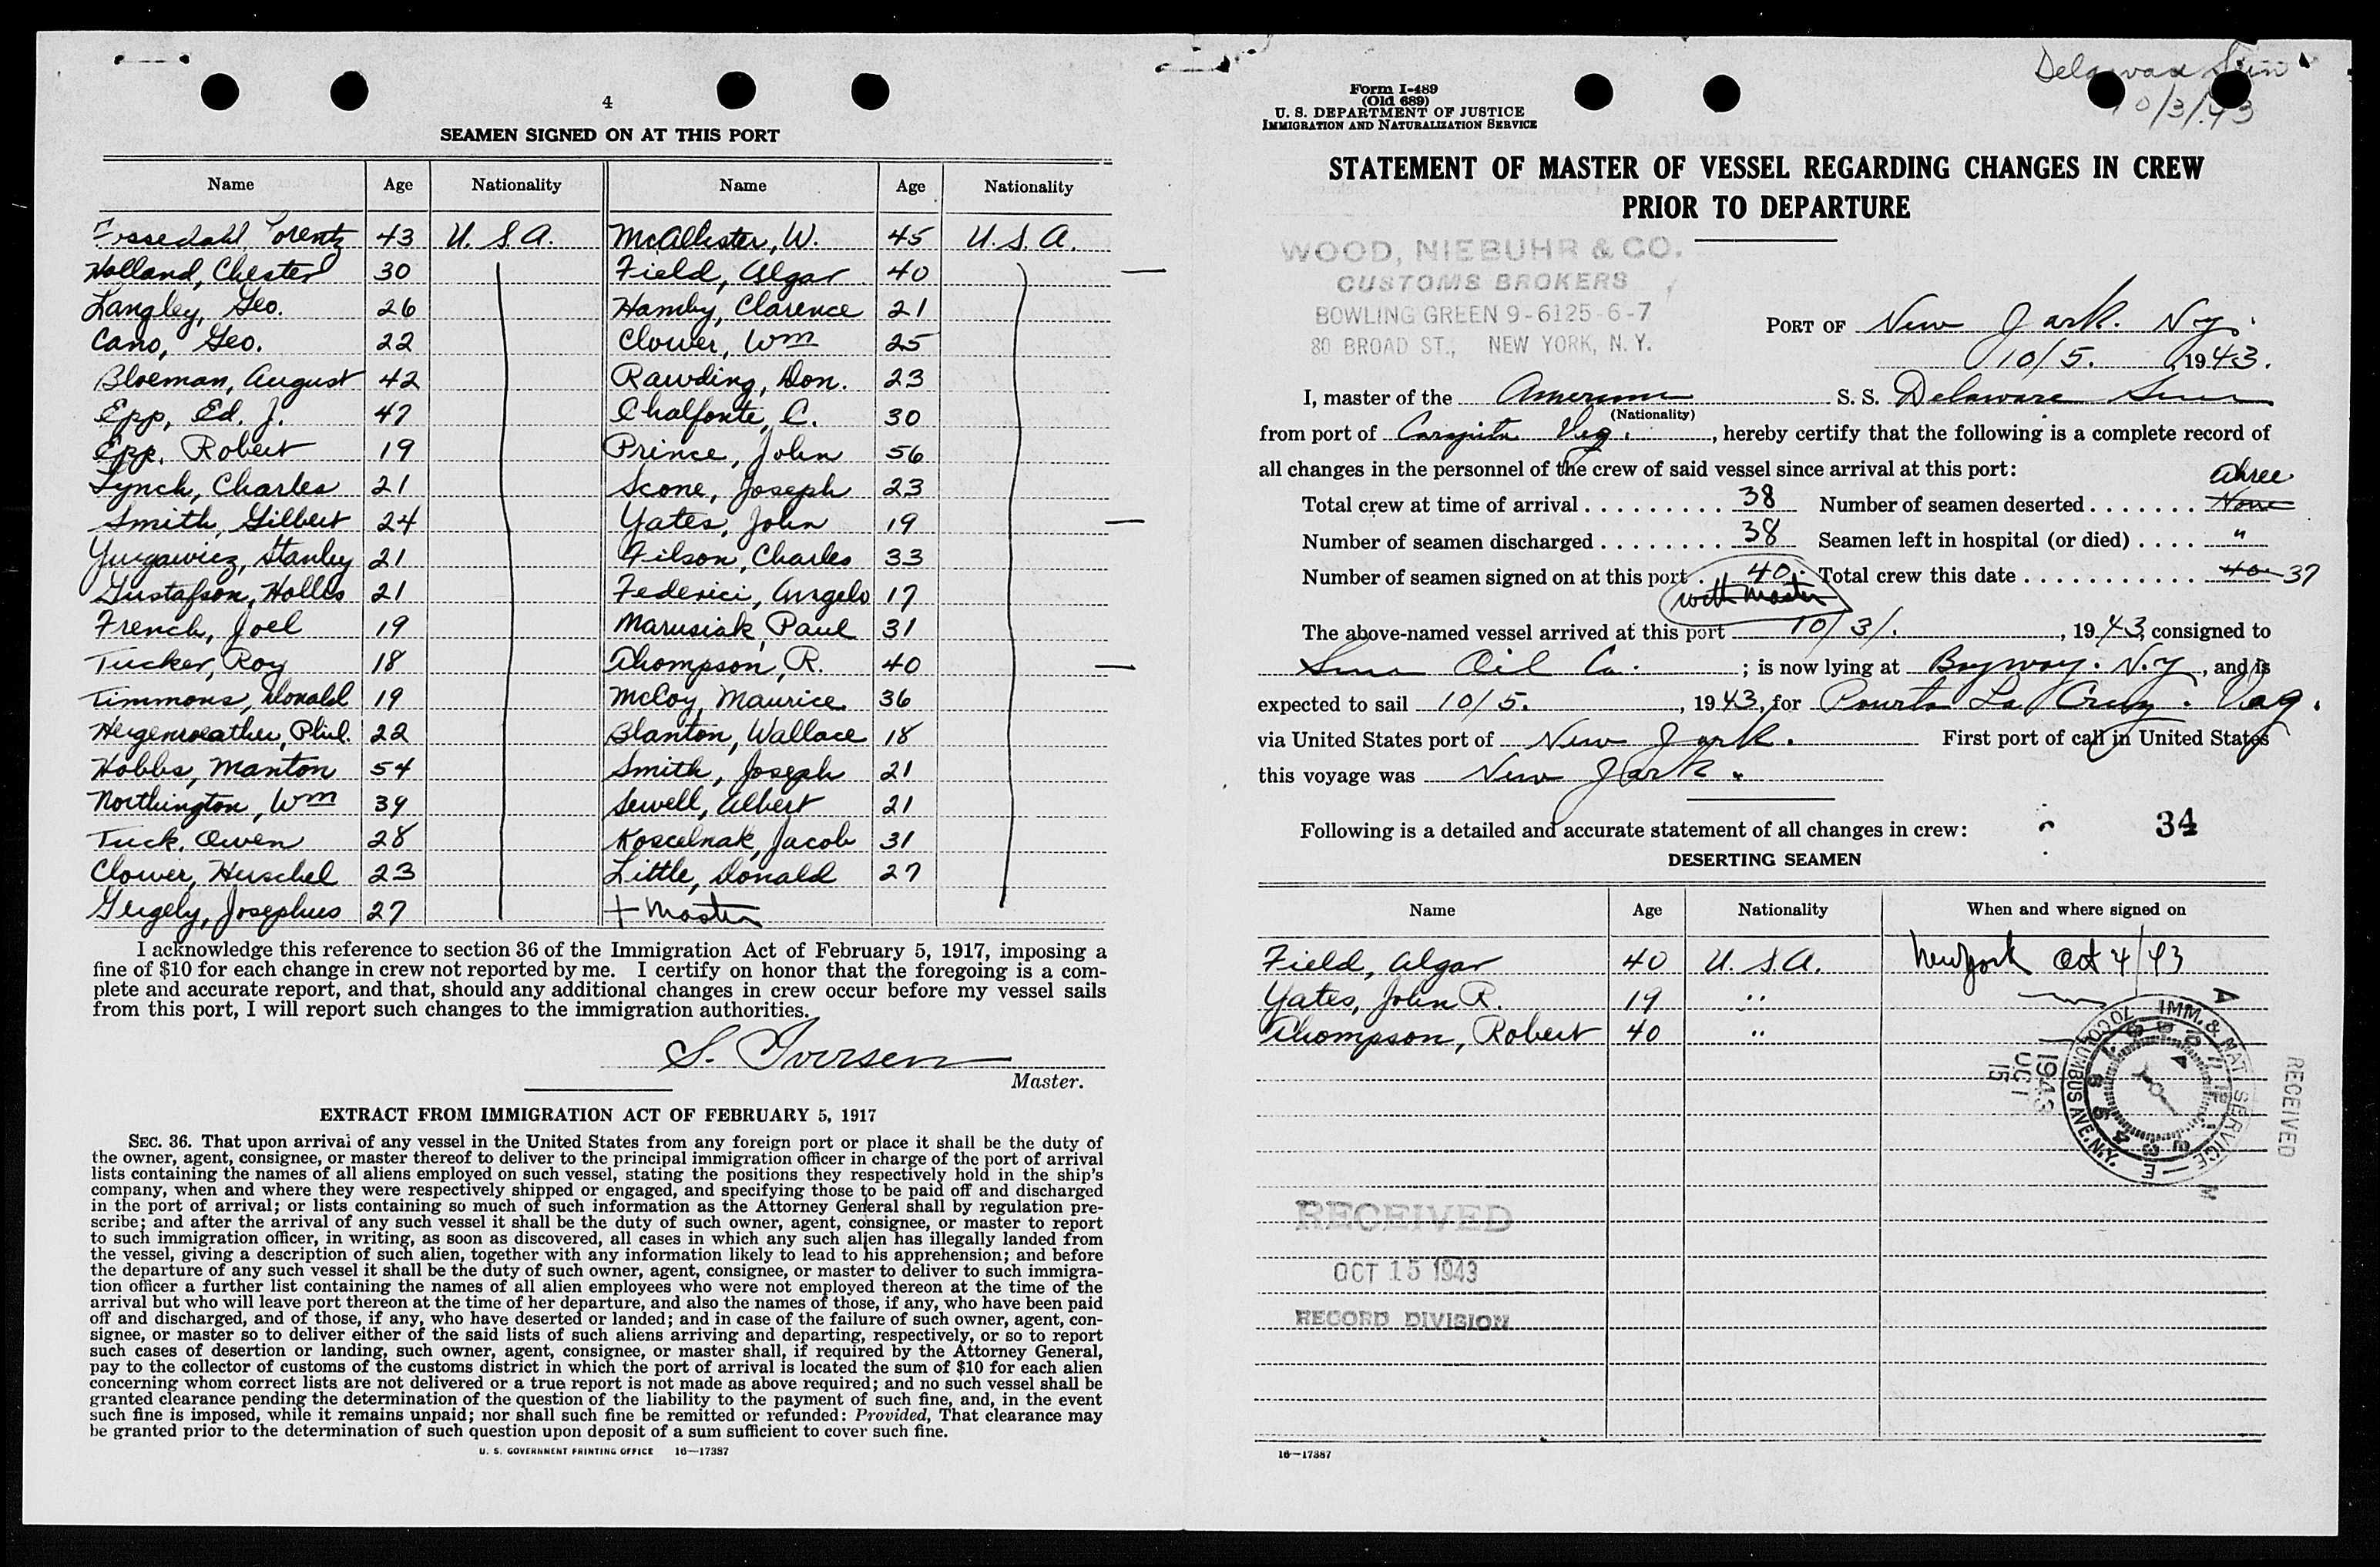 4
SEAMEN SIGNED ON AT THIS PORT
Name Age Nationality Name Age Nationality
Lorentz 43 U.S.A. McAllister, W. 45 U.S.A.
Holland, Chester 30 Field, Algar 40
Langley, Geo. 26 Hamby, Clarence 21
Cano, Geo. 22 Clower, Wm 25
Bloeman, August 42 Rawding, Don. 23
Epp, Ed. J. 47 Chalfonte, C. 30
Epp, Robert 19 Prince, John 56
Lynch, Charles 21 Scone, Joseph 23
Smith, Gilbert 24 Yates, John 19
Yurgawicz, Stanley 21 Filson, Charles 33
Gustafson, Hollis 21 Federici, Angelo 17
French, Joel 19 Marusiak, Paul 31
Tucker, Roy 18 Thompson, R. 40
Timmons, Donald 19 McCoy, Maurice 36
Hergenroeather, Phil. 22 Blanton, Wallace 18
Hobbs, Manton 54 Smith, Joseph 21
Northington, Wm 39 Sewell, Albert 21
Tuck, Owen 28 Koscelnak, Jacob 31
Clower, Herschel 23 Little, Donald 27
Gergely, Josephus 27 + Master
I acknowledge this reference to section 36 of the Immigration Act of February 5, 1917, imposing a
fine of $10 for each change in crew not reported by me. I certify on honor that the foregoing is a com-
plete and accurate report, and that, should any additional changes in crew occur before my vessel sails
from this port, I will report such changes to the immigration authorities.
S. Iversen
Master.
EXTRACT FROM IMMIGRATION ACT OF FEBRUARY 5, 1917
SEC. 36. That upon arrival of any vessel in the United States from any foreign port or place it shall be the duty of
the owner, agent, consignee, or master thereof to deliver to the principal immigration officer in charge of the port of arrival
lists containing the names of all aliens employed on such vessel, stating the positions they respectively hold in the ship's
company, when and where they were respectively shipped or engaged, and specifying those to be paid off and discharged
in the port of arrival; or lists containing so much of such information as the Attorney General shall by regulation pre-
scribe; and after the arrival of any such vessel it shall be the duty of such owner, agent, consignee, or master to report
to such immigration officer, in writing, as soon as discovered, all cases in which any such alien has illegally landed from
the vessel, giving a description of such alien, together with any information likely to lead to his apprehension; and before
the departure of any such vessel it shall be the duty of such owner, agent, consignee, or master to deliver to such immigra-
tion officer a further list containing the names of all alien employees who were not employed thereon at the time of the
arrival but who will leave port thereon at the time of her departure, and also the names of those, if any, who have been paid
off and discharged, and of those, if any, who have deserted or landed; and in case of the failure of such owner, agent, con-
signee, or master so to deliver either of the said lists of such aliens arriving and departing, respectively, or so to report
such cases of desertion or landing, such owner, agent, consignee, or master shall, if required by the Attorney General,
pay to the collector of customs of the customs district in which the port of arrival is located the sum of $10 for each alien
concerning whom correct lists are not delivered or a true report is not made as above required; and no such vessel shall be
granted clearance pending the determination of the question of the liability to the payment of such fine, and, in the event
such fine is imposed, while it remains unpaid; nor shall such fine be remitted or refunded: Provided, That clearance may
be granted prior to the determination of such question upon deposit of a sum sufficient to cover such fine.
U. S. GOVERNMENT PRINTING OFFICE 16—17387
Delaware Sun
10/3/43
Form I-489
(Old 689)
U. S. DEPARTMENT OF JUSTICE
IMMIGRATION AND NATURALIZATION SERVICE
STATEMENT OF MASTER OF VESSEL REGARDING CHANGES IN CREW
PRIOR TO DEPARTURE
WOOD, NIEBUHR & CO.
CUSTOMS BROKERS
BOWLING GREEN 9-6125-6-7
80 BROAD ST., NEW YORK, N. Y.
PORT OF New York. N.Y.
10/5. 1943.
I, master of the American S. S. Delaware Sun
(Nationality)
from port of Caripito Veg., hereby certify that the following is a complete record of
all changes in the personnel of the crew of said vessel since arrival at this port:
Three
Total crew at time of arrival 38 Number of seamen deserted None
Number of seamen discharged 38 Seamen left in hospital (or died) "
Number of seamen signed on at this port 40. Total crew this date 40 37
with master
The above-named vessel arrived at this port 10/3/., 1943, consigned to
Sun Oil Co.; is now lying at Bayway. N.Y, and is
expected to sail 10/5., 1943, for Pourto La Cruz. Veg.
via United States port of New York. First port of call in United States
this voyage was New York.
Following is a detailed and accurate statement of all changes in crew: 34
DESERTING SEAMEN
Name Age Nationality When and where signed on
Field, Algar 40 U.S.A. New York Oct 4/43
Yates, John R. 19 "
Thompson, Robert 40 "
RECEIVED
1943 OCT 15
IMM. & NAT. SERVICE
70 COLUMBUS AVE. N.Y.
RECEIVED
OCT 15 1943
RECORD DIVISION
16—17387